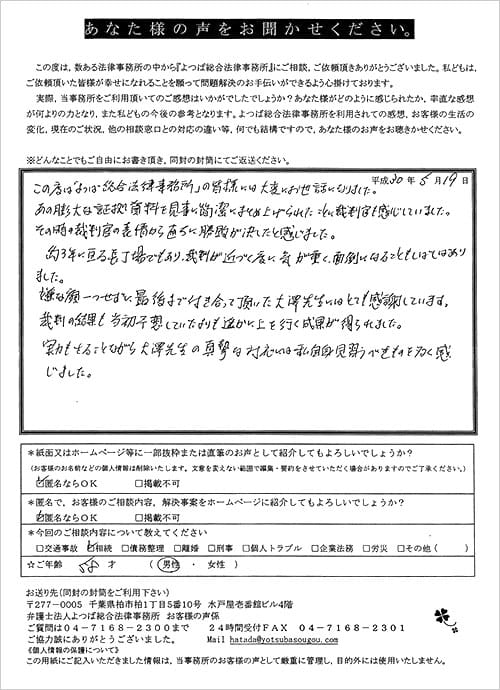 あなた様の声をお聞かせください。
この度は、数ある法律事務所の中から『よつば総合法律事務所』にご相談、ご依頼頂きありがとうございました。私どもは、
ご依頼頂いた皆様が幸せになれることを願って問題解決のお手伝いができるよう心掛けております。
実際、当事務所をご利用頂いてのご感想はいかがでしたでしょうか?あなた様がどのように感じられたか、率直な感想
が何よりの力となり、また私どもの今後の参考となります。よつば総合法律事務所を利用されての感想、お客様の生活の
変化、現在のご状況、他の相談窓口との対応の違い等、何でも結構ですので、あなた様のお声をお聴きかせください。
※どんなことでもご自由にお書き頂き、同封の封筒にてご返送ください。
平成30年5月19日
この度は「よつば総合法律事務所」の皆様には大変にお世話になりました。
あの膨大な証拠資料を見事に簡潔にまとめ上げられたことに裁判官も感じていました。
その時の裁判官の表情から直ちに勝敗が決したと感じました。
約3年に亘る長丁場でもあり、裁判が近づく度に気が重く、面倒になることもしばしばあり
ました。
嫌な顔一つせずに最後まで付き合って頂いた大澤先生にはとても感謝しています。
裁判の結果も当初予想していたよりも遥かに上を行く成果が得られました。
実力もさることながら大澤先生の真摯な対応には私自身見習うべきものを多く感
じました。
*紙面又はホームページ等に一部抜粋または直筆のお声として紹介してもよろしいでしょうか?
(お客様のお名前などの個人情報は削除いたします。文意を変えない範囲で編集・要約をさせていただく場合がありますのでご了承ください。)
☑匿名ならOK □掲載不可
*匿名で、お客様のご相談内容、解決事案をホームページに紹介してもよろしいでしょうか?
☑匿名ならOK □掲載不可
*今回のご相談内容について教えてください
□交通事故 ☑相続 □債務整理 □離婚 □刑事 □個人トラブル □企業法務 □労災 □その他( )
☆ご年齢 才 (男性・女性)
お送り先(同封の封筒をご利用下さい)
〒277-0005 千葉県柏市柏1丁目5番10号 水戸屋壱番館ビル4階
弁護士法人よつば総合法律事務所 お客様の声係
ご質問は04-7168-2300まで 24時間受付FAX 04-7168-2301
ご協力誠にありがとうございました。 Mail hatada@yotsubasougou.com
《個人情報の保護について》
この用紙にご記入いただきました情報は、当事務所のお客様の声として厳重に管理し、目的外には使用いたしません。